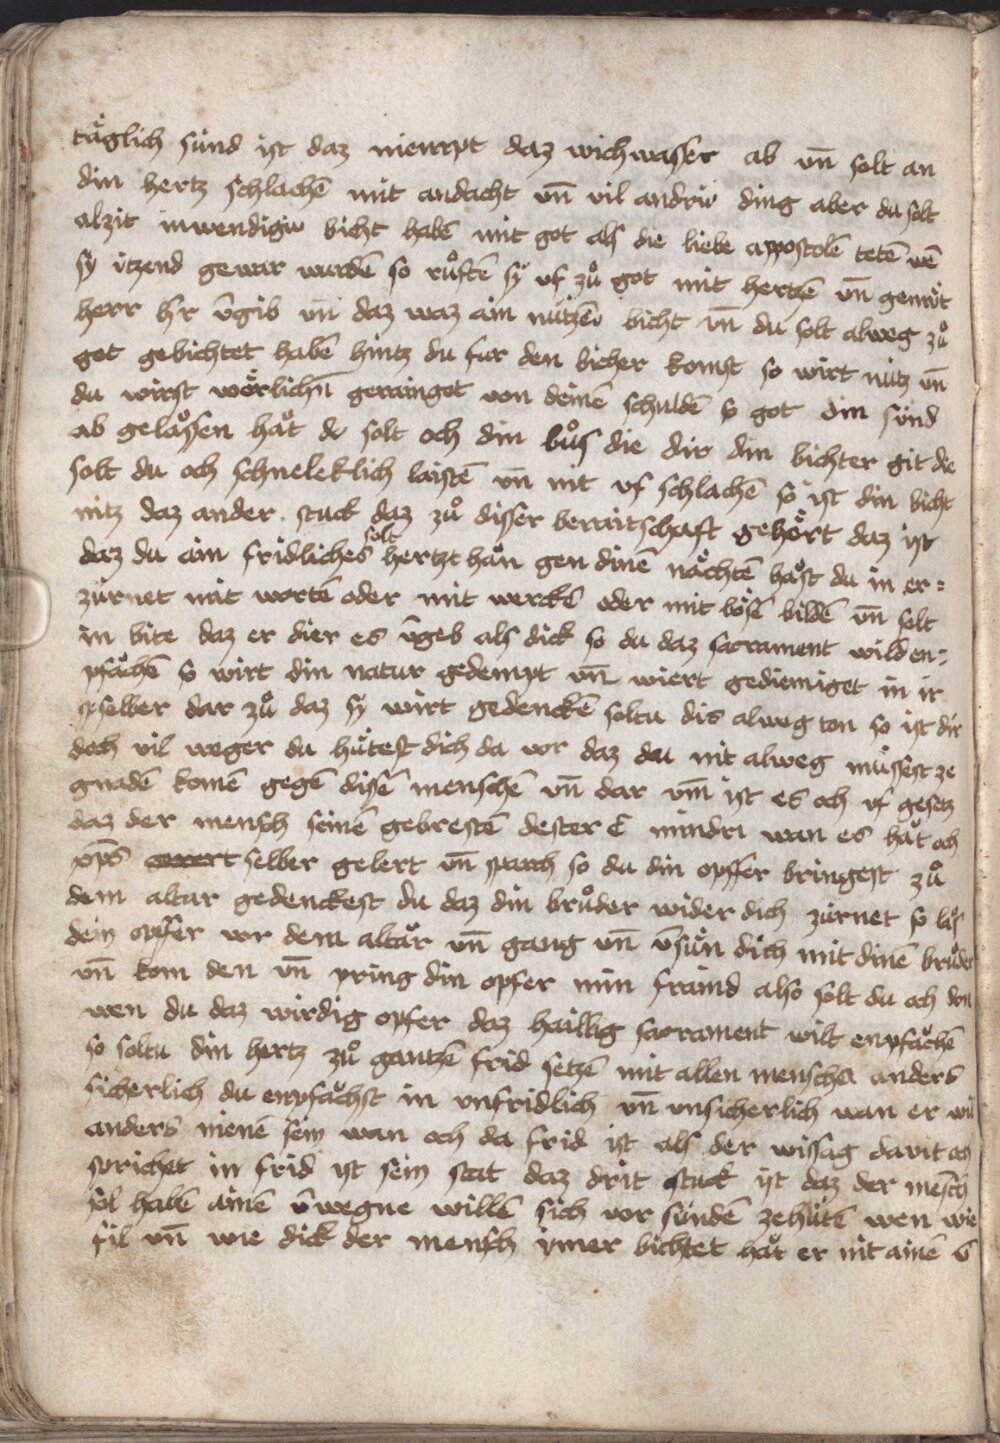 täglich sünd ist daz niempt daz wichwasser ab vn̄ solt an
din hertz schlachē mit andacht vn̄ vil andriu ding aber du solt
alzit inwendigiu bicht habē mit got als die liebe appostolē tetē wē
sy itzend gewar wurdē so růftē sÿ vf zů got mit hertzē vn̄ gemüt
herr h̄r v̄gib vn̄ daz waz ain nützeu bicht vn̄ du solt alweg zů
got gebichtet habē hintz du fur den bicher komst so wirt nütz vn̄
du wirst wörlichn̄ gerainget von deinē schuldē so got din sünd
ab gelåssen håt do solt och din bůs die dir din bichter git die
solt du och schneleklich laistē vn̄ nit vf schlachē so ist din bicht
nitz daz ander stuck daz zů disser berraitschaft gehört daz ist
daz du ain fridliches solt hertzt hån gen dinē nåchtē håst du in er=
zürnet mit wortē oder mit werckē oder mit bösē bildē vn̄ solt
in bite daz er dier es v̄geb als dick so du daz sacrament wild en=
pfåchē so wirt din natur gedempt vn̄ wiert gediemiget in ir
selber dar zů daz sÿ wirt gedenckē soltu dis alweg ton so ist dir
doch vil weger du hütest dich da vor daz du nit alweg müssest ze
gnadē komē gegē disē menschē vn̄ dar vm̄ ist es och vf gesetz
daz der mensch seinē gebrestē dester E mindri wan es håt och
xp̄s selber gelert vn̄ sprach so du din opffer bringest zů
dem altar gedenckest du daz din brůder wider dich zürnet so låß
dein opffer vor dem altår vn̄ gang vn̄ v̄sün dich mit dinē brůder
vn̄ kom den vn̄ pring din opfer min fraind also solt du och don
wen du daz wirdig opfer daz haillig sacrament wilt enpfåchē
so soltu din hertz zů gantzē frid setzē mit allen menscha anders
sicherlich du enpfåchst in vnfridlich vn̄ vnsicherlich wan er wil
anders nienē sein wan och da frid ist als der wissag davit och
sprichet in frid ist sein stat daz drit stuck ist daz der mēsch
sol habē ainē v̄wegne willē sich vor sündē zehütē wen wie
fil vn̄ wie dick der mensch ymer bichtet håt er nit ainē